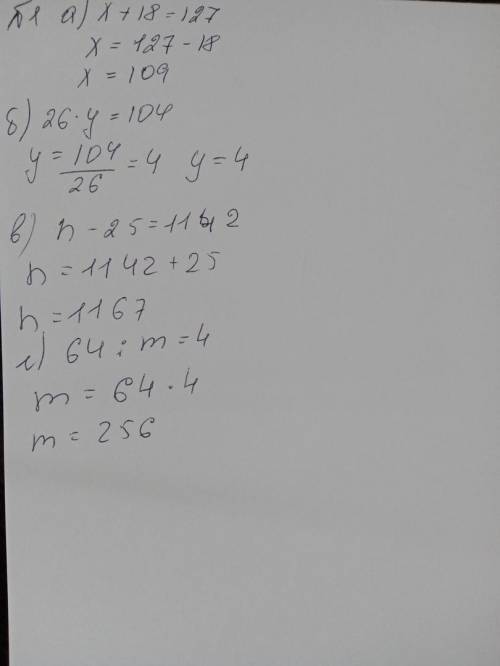 №1 а) x + 18 = 127
x = 127 - 18
x = 109
б) 26 · y = 104
y = 104/26 = 4 y = 4
в) n - 25 = 1142
n = 1142 + 25
n = 1167
г) 64 : m = 4
m = 64 · 4
m = 256